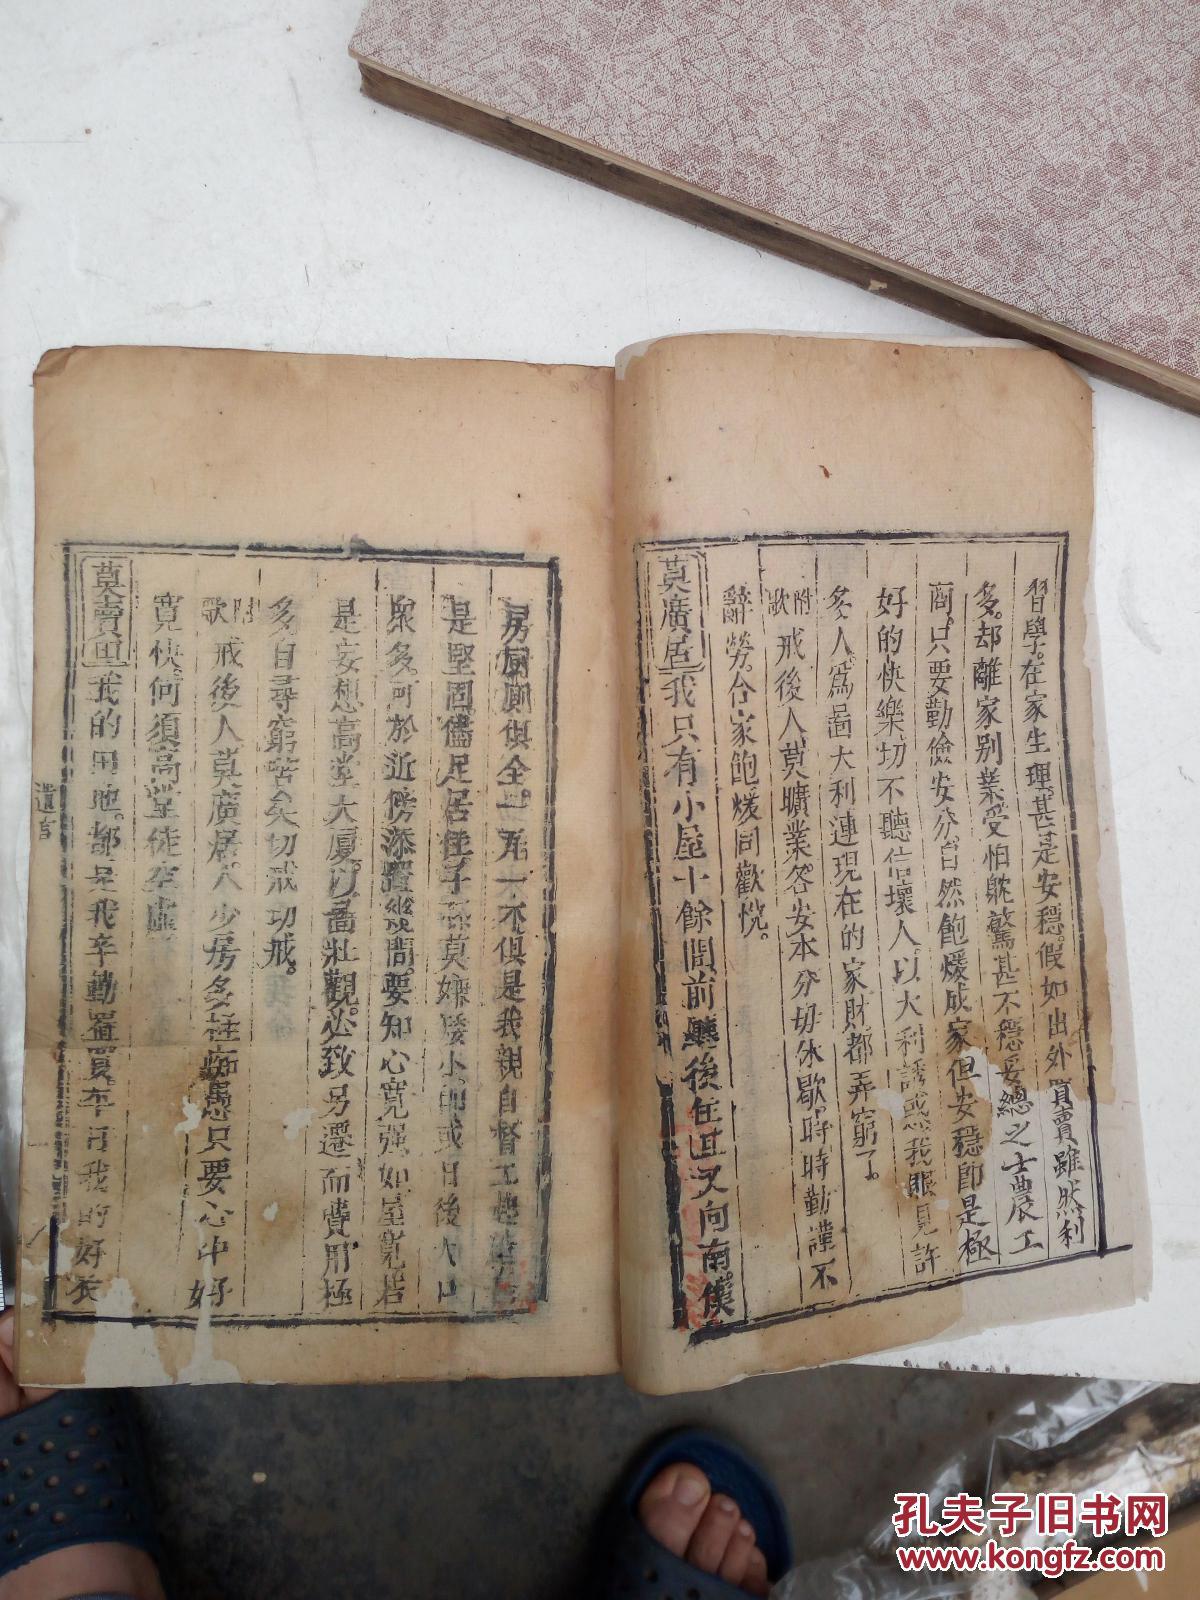 習學。在家生理。甚是安穩。假如出外買賣雖然利
多。却離家別業。受怕躭驚。甚不穩妥。總之士農工
商。只要勤儉安分。自然飽煖成家。但安穩卽是極
好的快樂。切不聽信壞人。以大利誘惑。我眼見許
多人。爲啚大利連現在的家財都弄窮了。
附歌 戒後人莫曠業。各安本分切休歇。時時勤謹不
辭勞。合家飽煖同歡悅。
莫廣居 我只有小屋十餘間。前廳後住。且又向南。僕
房厨厠俱全。一瓦一木。俱是我親自督工
是堅固。儘足居住。子孫莫嫌矮小。卽或日後人口
衆多。可於近傍添置幾間。要知心寬强如屋寬。若
是妄想高堂大厦。以啚壯觀。必致另遷。而費用極
多。自尋窮苦矣。切戒切戒。
附歌 戒後人莫廣居。人少房多柱痴愚。只要心中好
寬快。何須高堂徒空虛。
莫賣田 我的田地。都是我辛勤置買。 我的好衣
遺言
孔夫子旧书网
www.kongfz.com